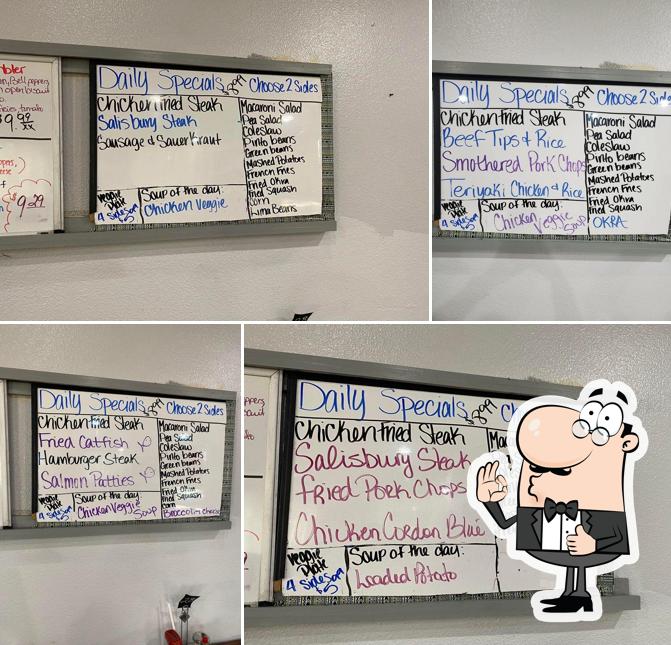 Daily Specials 8.99 Choose 2 Sides
Chicken fried Steak
Salisbury Steak
Sausage & Sauer Kraut
Macaroni Salad
Pea Salad
Coleslaw
Pinto beans
Green beans
Mashed Potatoes
French Fries
Fried Okra
Fried Squash
Corn
Lima Beans
Veggie
Plate
4 Sides
Soup of the day:
Chicken Veggie
9.29
Daily Specials 8.99 Choose 2 Sides
Chicken fried Steak
Beef Tips & Rice
Smothered Pork Chops
Teriyaki Chicken & Rice
Macaroni Salad
Pea Salad
Coleslaw
Pinto beans
Green beans
Mashed Potatoes
French Fries
Fried Okra
Fried Squash
OKRA
Veggie
Plate
4 Sides
Soup of the day:
Chicken Veggie
Soup
Daily Specials 8.99 Choose 2 Sides
Chicken fried Steak
Fried Catfish
Hamburger Steak
Salmon Patties
Macaroni Salad
Pea Salad
Coleslaw
Pinto beans
Green beans
Mashed Potatoes
French Fries
Fried Okra
Fried Squash
Corn
Veggie
Plate
4 Sides
Soup of the day:
Chicken Veggie Soup
Daily Specials 8.99
Chicken fried Steak
Salisbury Steak
Fried Pork Chops
Chicken Cordon Blue
Veggie
Plate
4 Sides
Soup of the day:
Loaded Potato